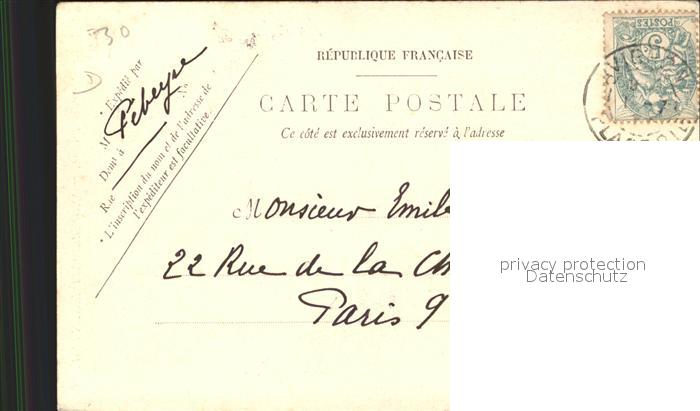 30
D
RÉPUBLIQUE FRANÇAISE
CARTE POSTALE
Ce côté est exclusivement réservé à l'adresse
* Expédié par
M Pebeyre
Demt à
Rue No
* L'inscription du nom et de l'adresse de
l'expéditeur est facultative.
POSTES
Monsieur Emil
22 Rue de la Ch
Paris 9
privacy protection
Datenschutz